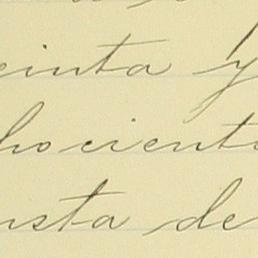 einta y
hocient
sta de